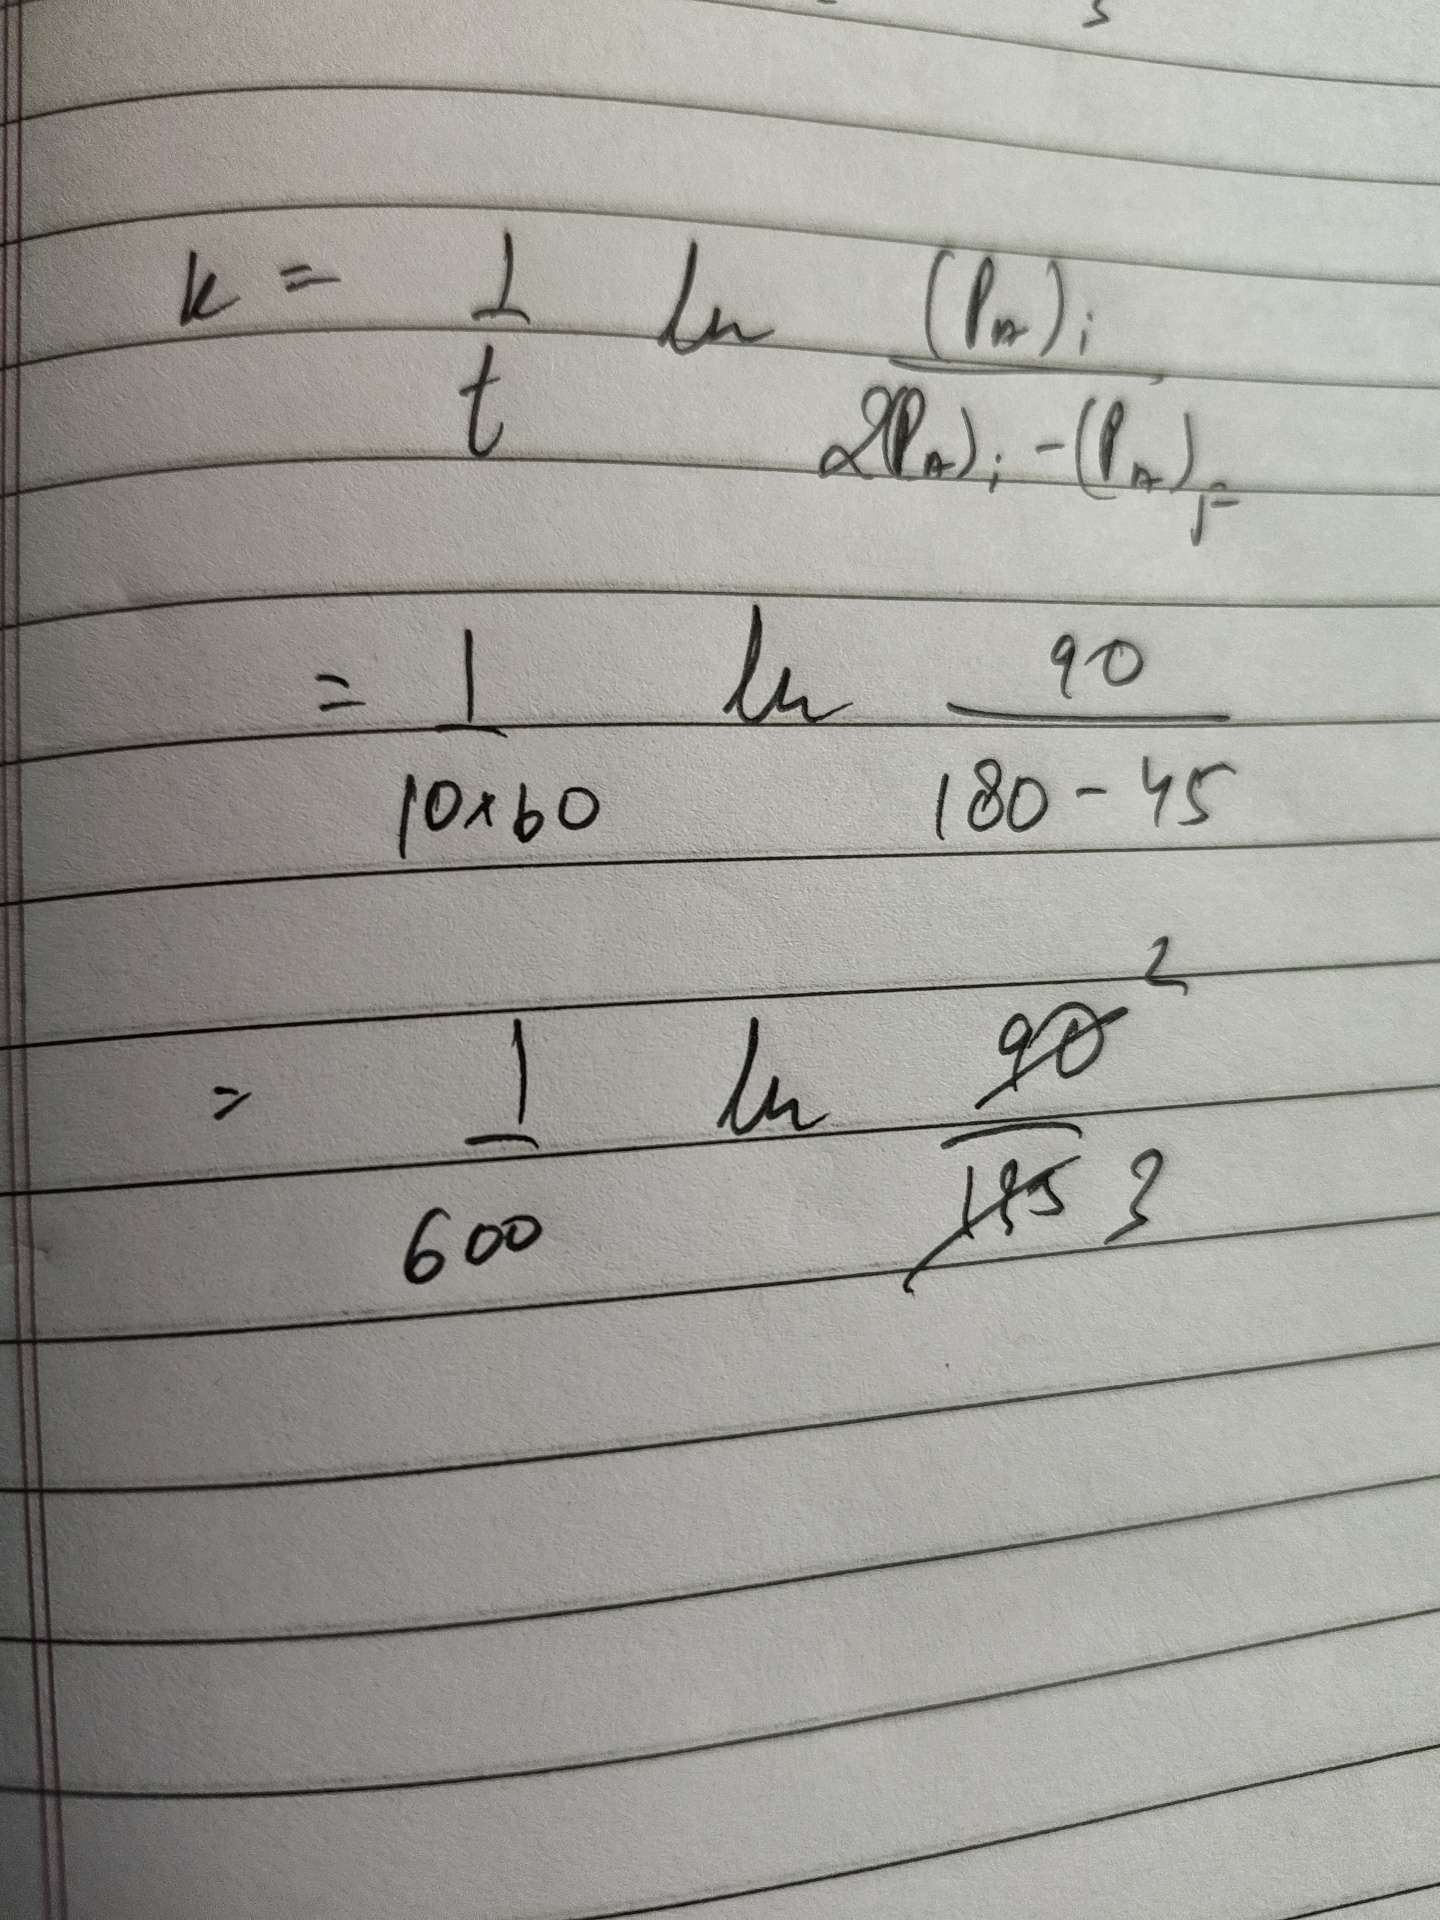 k = 1/t ln (P_A)i / 2(P_A)i - (P_A)F
= 1/10×60 ln 90/180-45
= 1/600 ln 90 2/135 3